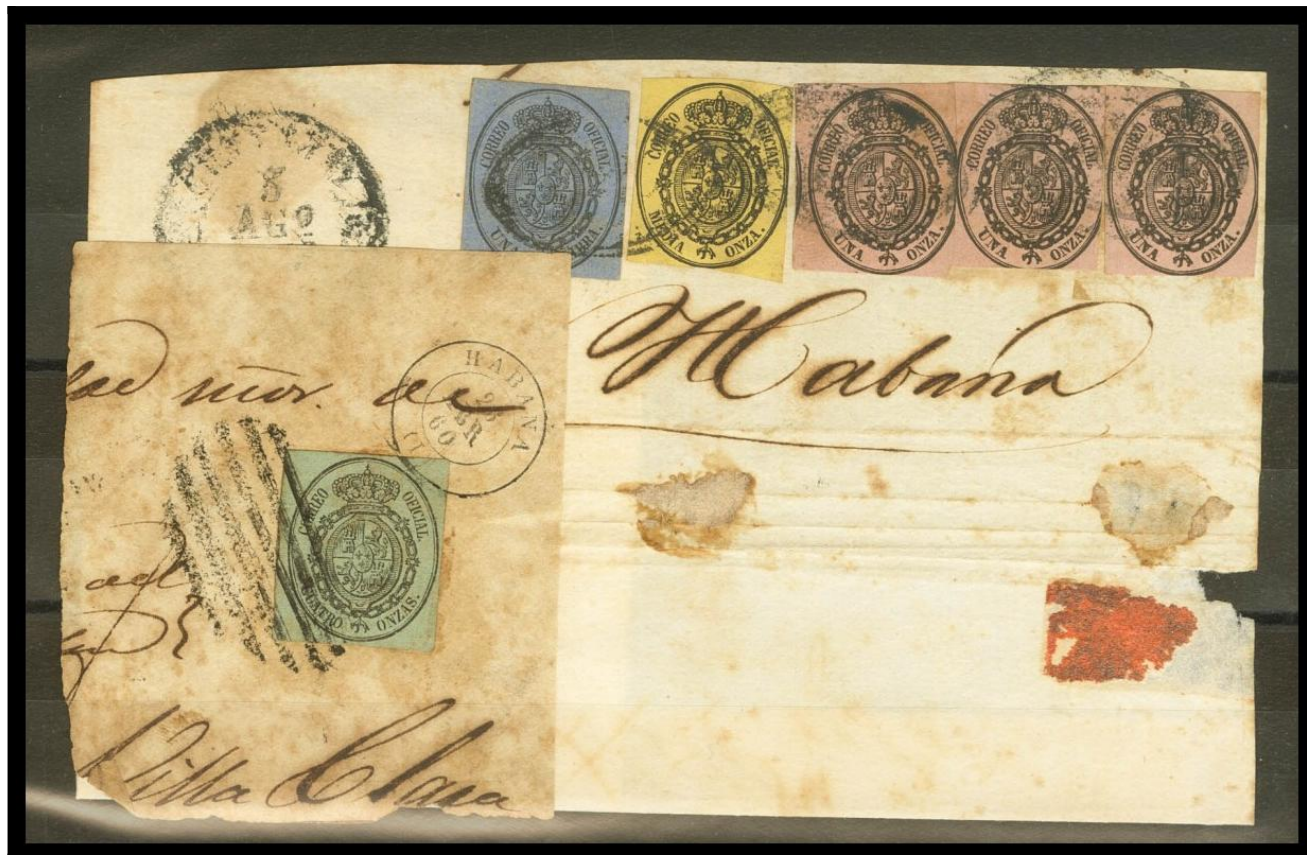 5
AGO
CORREO OFICIAL.
UNA
CORREO OFICIAL.
MEDIA ONZA.
CORREO OFICIAL.
UNA ONZA.
CORREO OFICIAL.
UNA ONZA.
CORREO OFICIAL.
UNA ONZA.
Habana
HABANA
60
de
CORREO OFICIAL.
CUATRO ONZAS.
Villa Clara